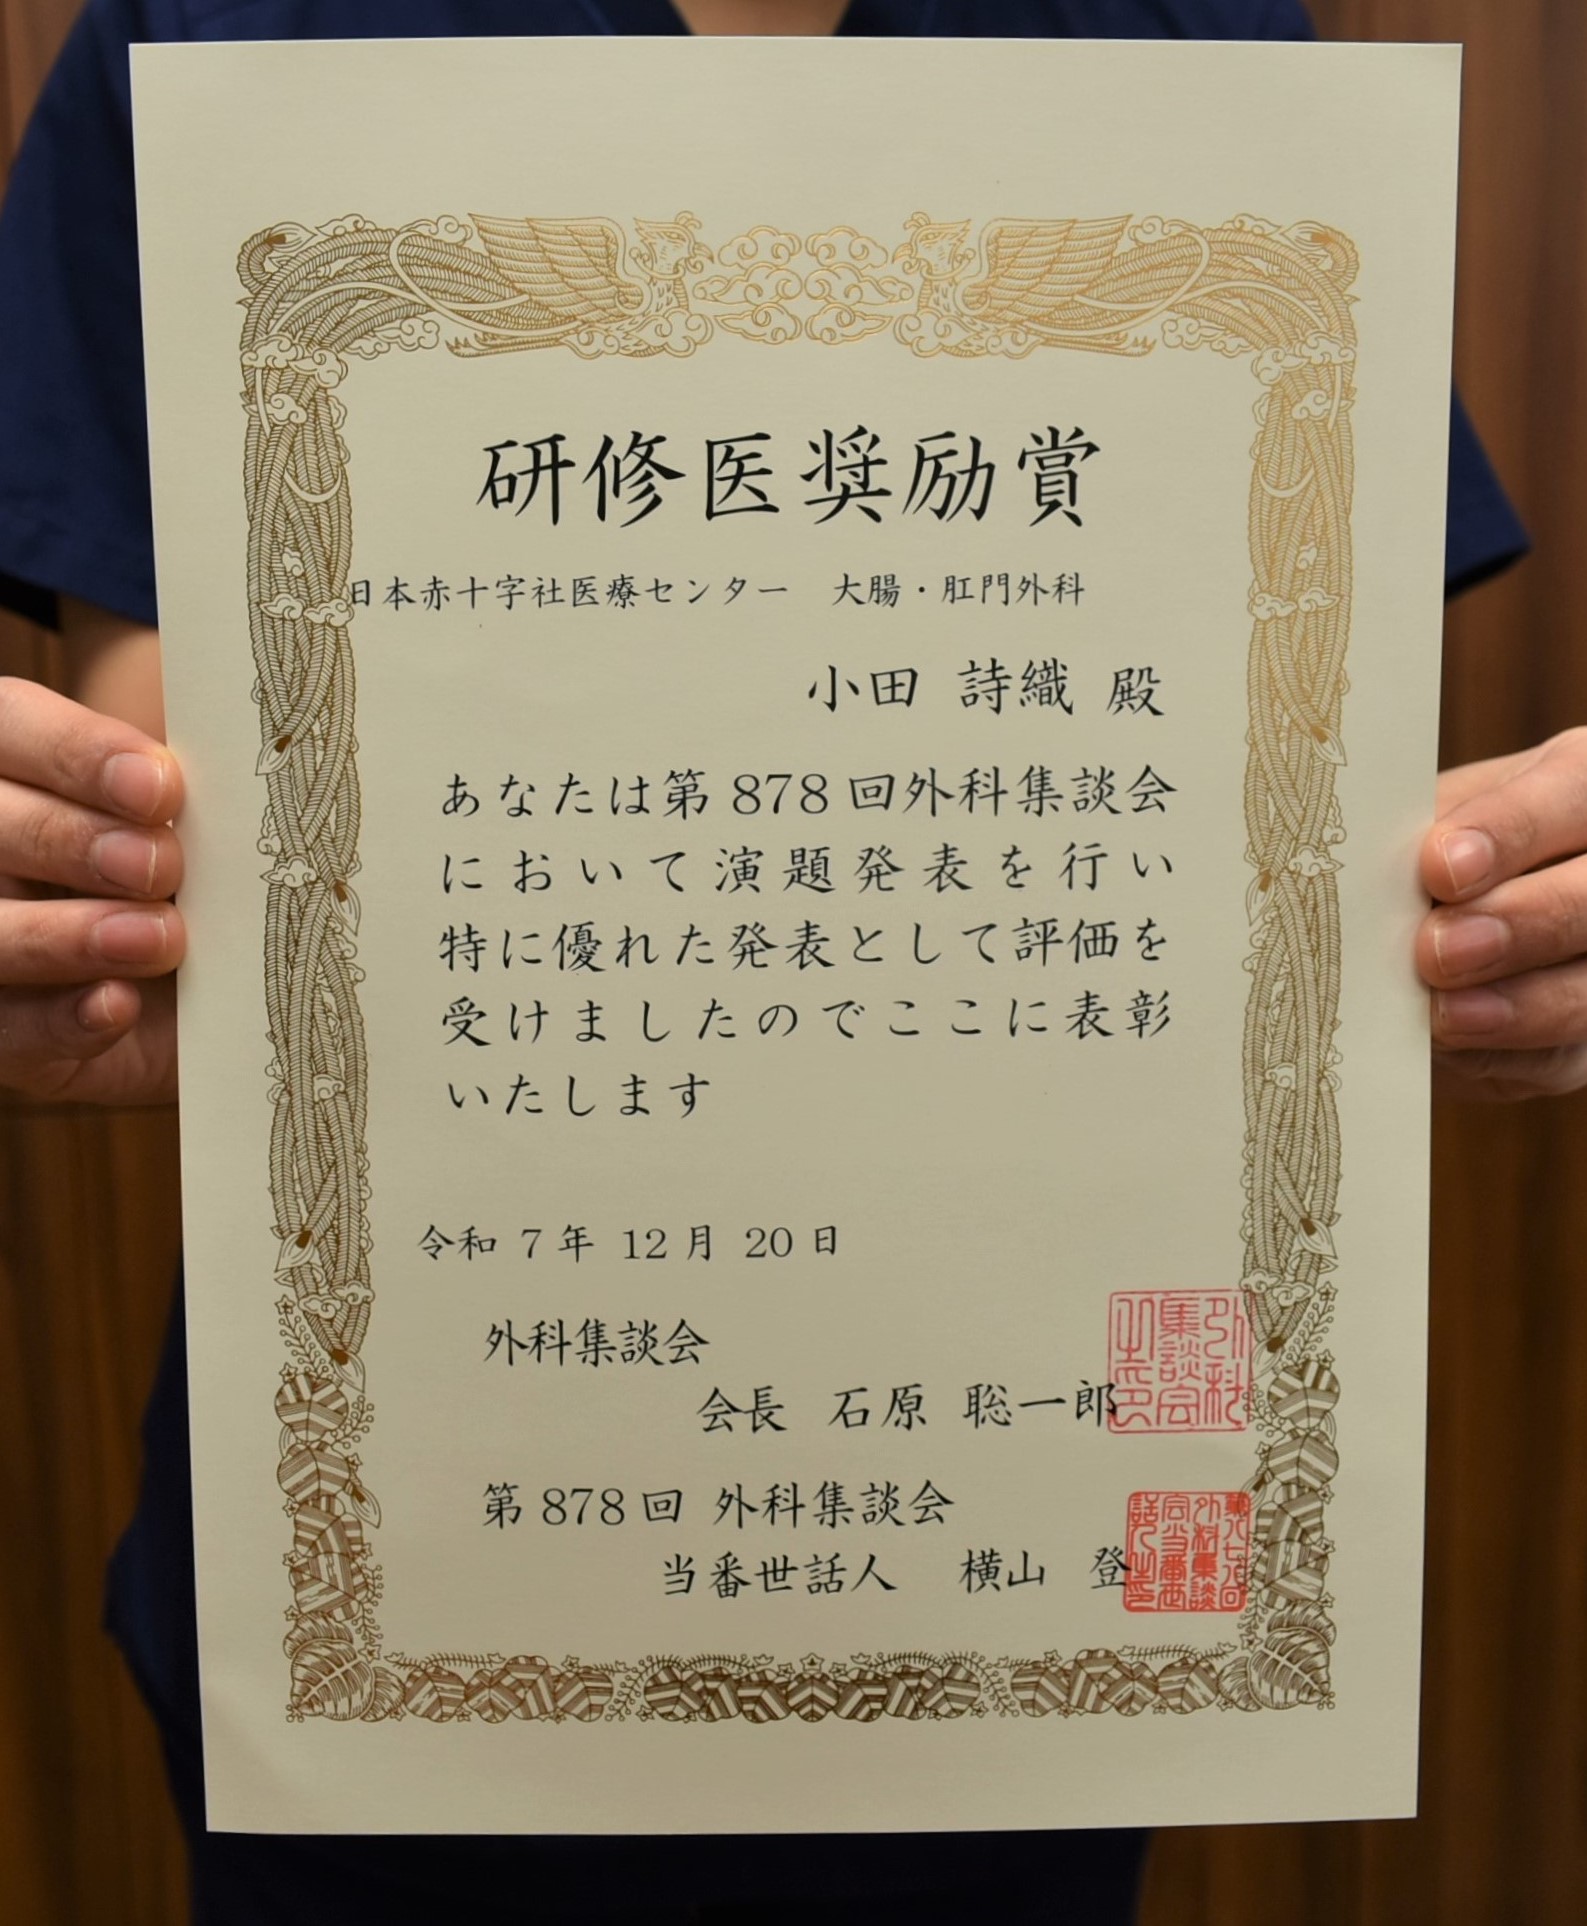 研修医奨励賞
日本赤十字社医療センター　大腸・肛門外科
小田 詩織 殿
あなたは第 878 回外科集談会
において演題発表を行い
特に優れた発表として評価を
受けましたのでここに表彰
いたします
令和 7 年 12 月 20 日
外科集談会
会長 石原 聡一郎
外科集談会之印
第 878 回 外科集談会
当番世話人 横山 登
第八七八回外科集談会当番世話人之印